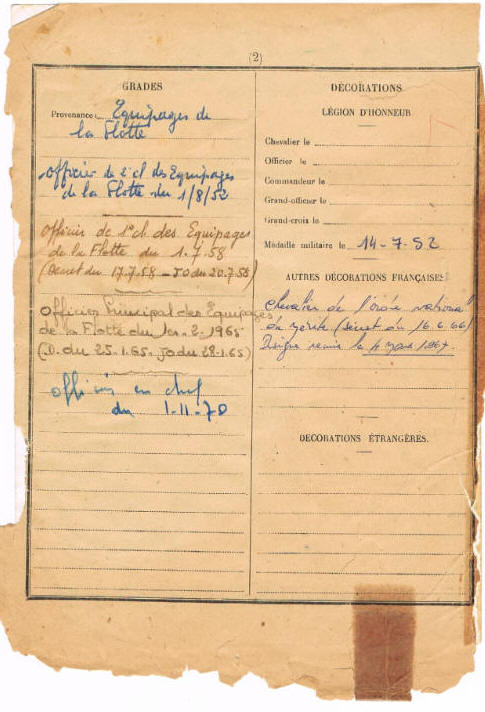 (2)
GRADES
Provenance: Equipages de
la Flotte
officier de 2e cl des Equipages
de la Flotte du 1/8/52
Officier de 1e cl. des Equipages
de la Flotte du 1.7.58
(Décret du 17.7.58 - JO du 20.7.58)
Officier Principal des Equipages
de la Flotte du 1er-2-1965
(D. du 25.1.65. JO du 28.1.65)
officier en chef
du 1-11-70
DÉCORATIONS
LÉGION D'HONNEUR
Chevalier le
Officier le
Commandeur le
Grand-officier le
Grand-croix le
Médaille militaire le 14-7-52
AUTRES DÉCORATIONS FRANÇAISES
Chevalier de l'ordre national
du mérite (Décret du 16.6.66)
Insigne remis le 4 Mars 1967.
DÉCORATIONS ÉTRANGÈRES.